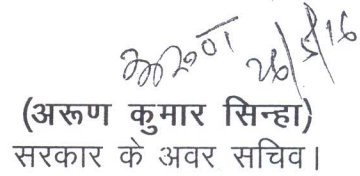 अरुण 26/5/16
(अरूण कुमार सिन्हा)
सरकार के अवर सचिव।